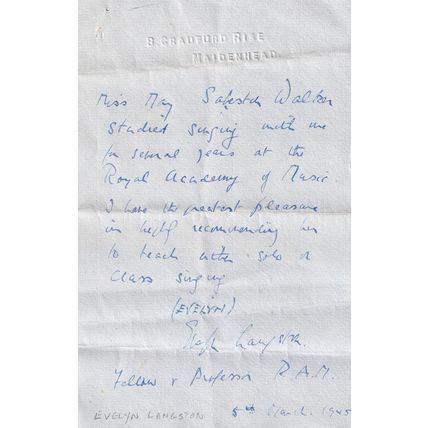 8 CRADFORD RISE
MAIDENHEAD.
Miss May Walker
studied singing with me
for several years at the
Royal Academy of Music
I have the greatest pleasure
in highly recommending her
to teach either solo or
class singing
(EVELYN)
Evelyn Langston.
Fellow & Professor R.A.M.
EVELYN LANGSTON 5th March. 1945